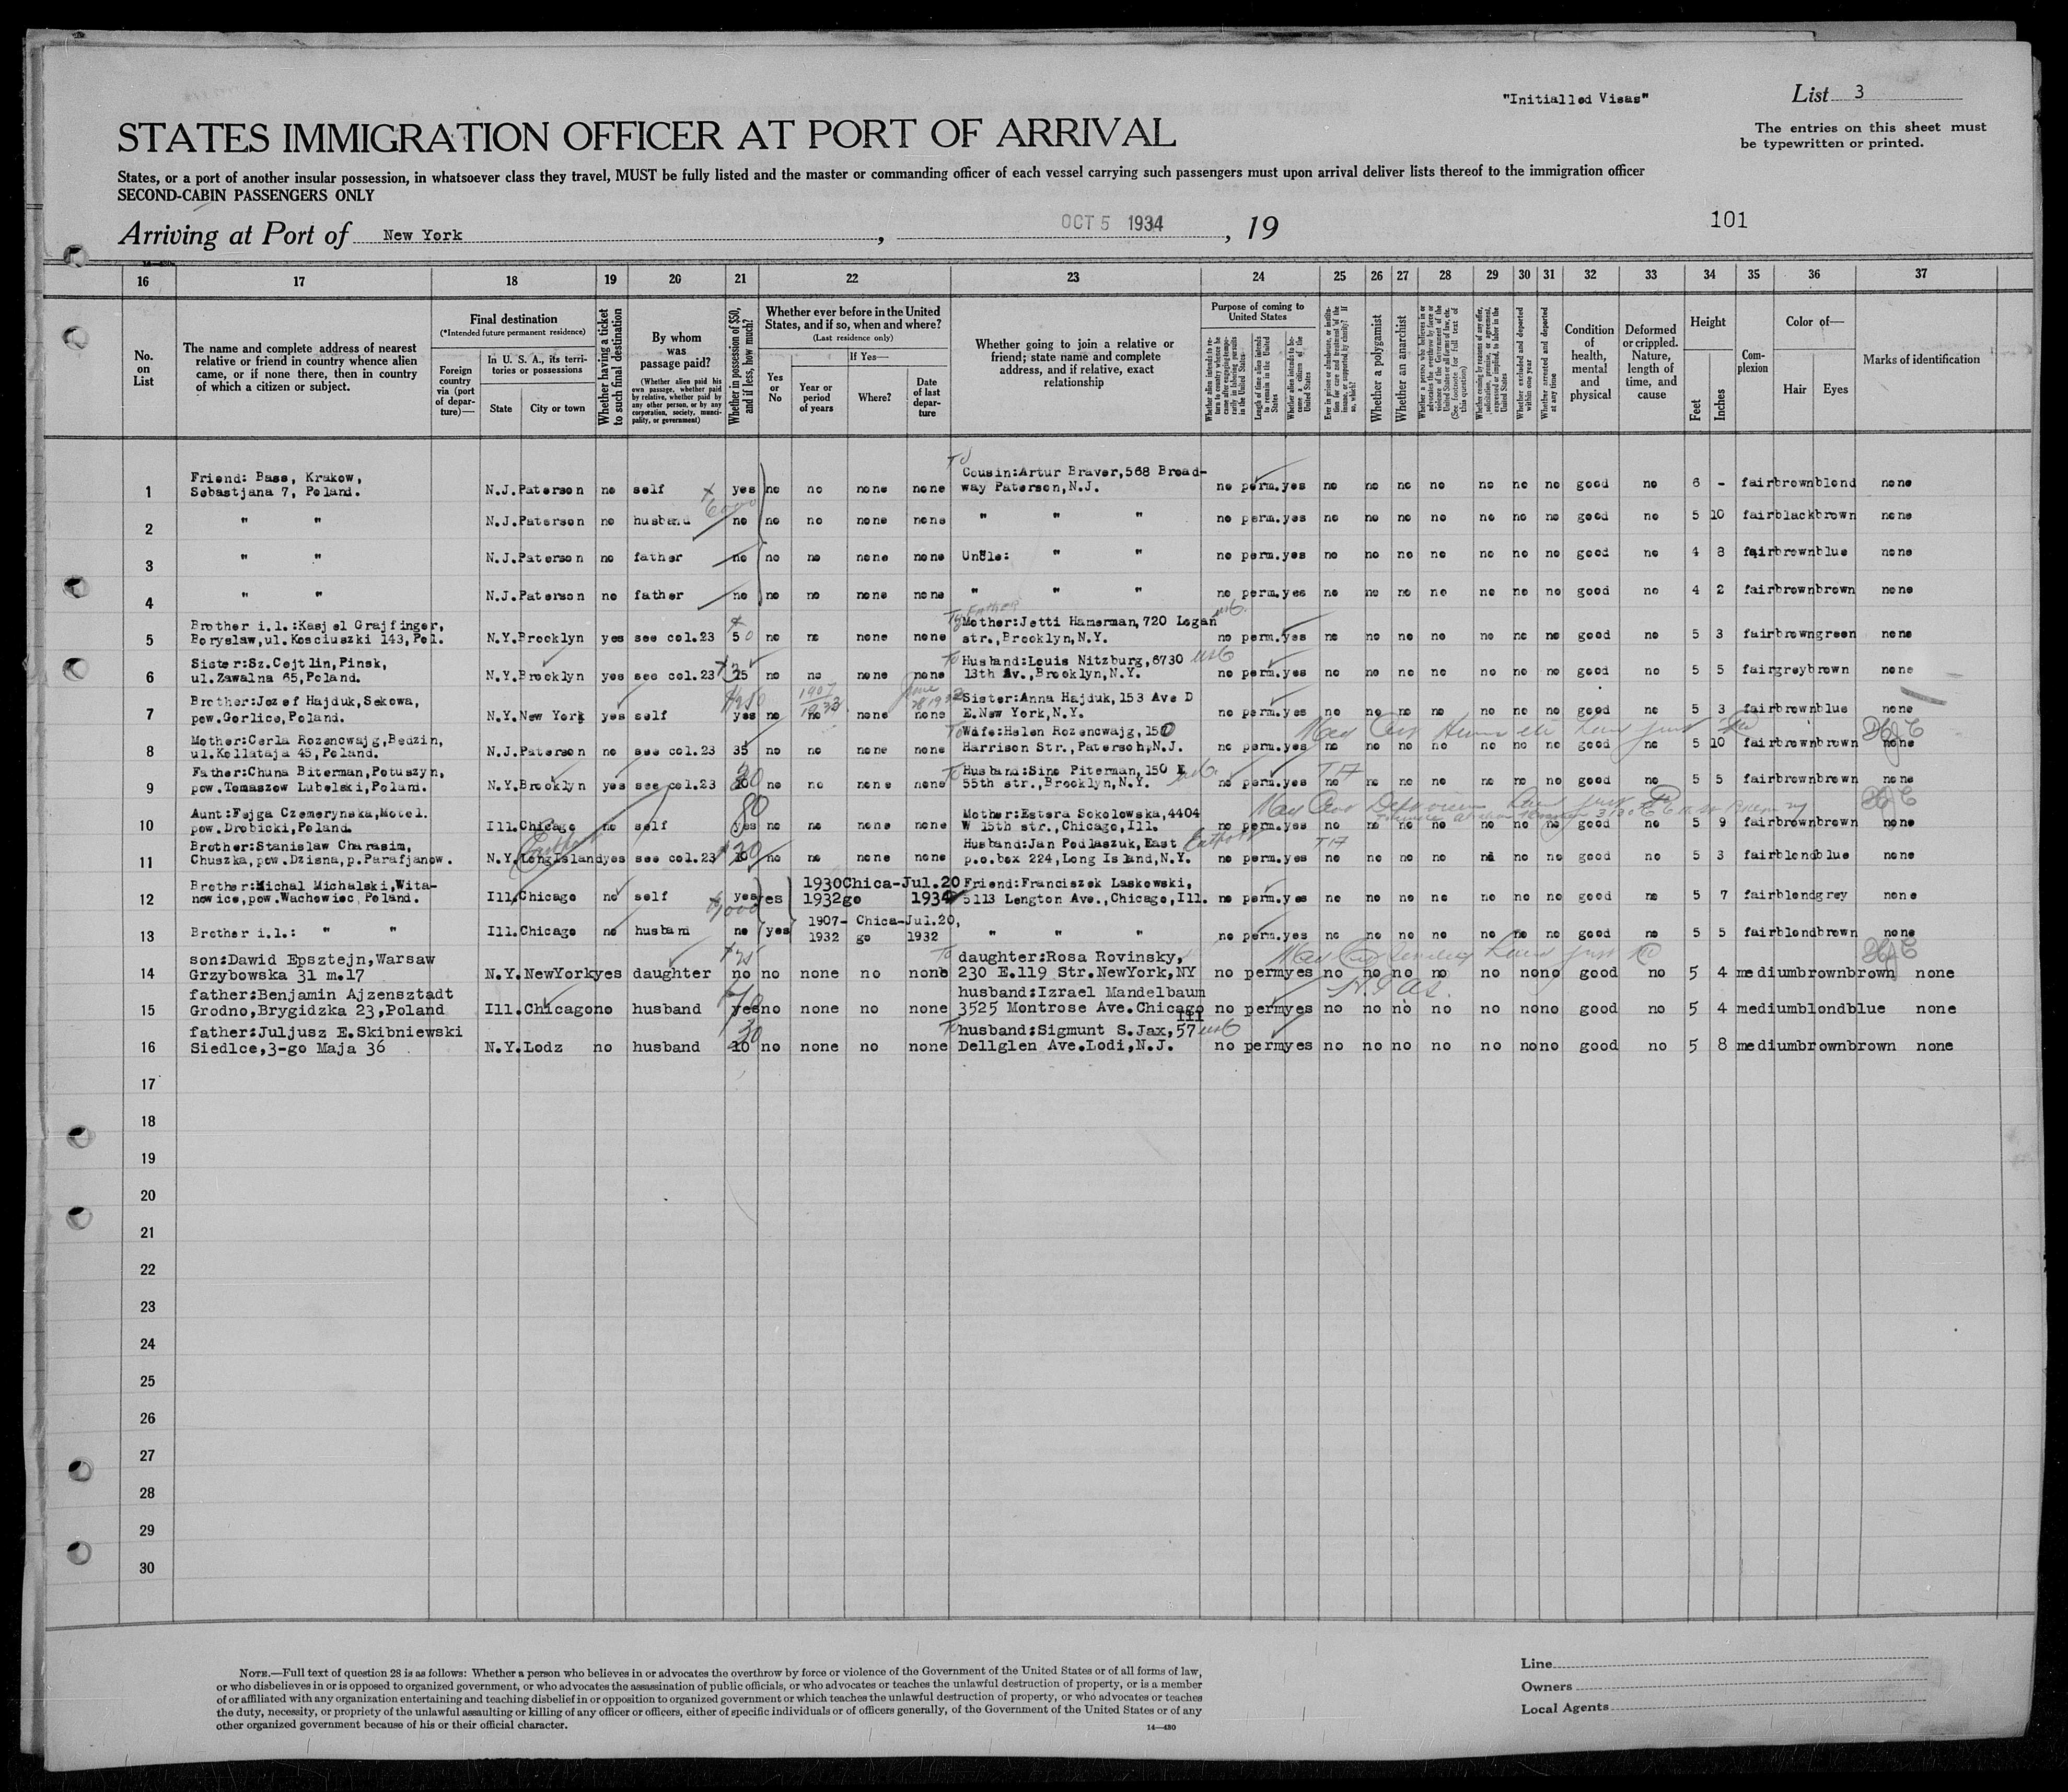 "Initialled Visas"
List 3
The entries on this sheet must
be typewritten or printed.
STATES IMMIGRATION OFFICER AT PORT OF ARRIVAL
States, or a port of another insular possession, in whatsoever class they travel, MUST be fully listed and the master or commanding officer of each vessel carrying such passengers must upon arrival deliver lists thereof to the immigration officer
SECOND-CABIN PASSENGERS ONLY
Arriving at Port of New York, OCT 5 1934, 19
101
16 17 18 19 20 21 22 23 24 25 26 27 28 29 30 31 32 33 34 35 36 37
No. on List
The name and complete address of nearest relative or friend in country whence alien came, or if none there, then in country of which a citizen or subject.
Final destination
(*Intended future permanent residence)
Foreign country via (port of departure)—
In U. S. A., its territories or possessions
State
City or town
Whether having a ticket to such final destination
By whom was passage paid?
(Whether alien paid his own passage, whether paid by relative, whether paid by any other person, or by any corporation, society, municipality, or government)
Whether in possession of $50, and if less, how much?
Whether ever before in the United States, and if so, when and where?
(Last residence only)
Yes or No
If Yes—
Year or period of years
Where?
Date of last departure
Whether going to join a relative or friend; state name and complete address, and if relative, exact relationship
Purpose of coming to United States
Length of time alien intends to remain in the United States
Whether alien intends to become a citizen of the United States
Whether a polygamist
Whether an anarchist
Whether excluded and deported within one year
Whether arrested and deported at any time
Condition of health, mental and physical
Deformed or crippled. Nature, length of time, and cause
Height
Feet
Inches
Complexion
Color of—
Hair
Eyes
Marks of identification
Friend: Bass, Krakow, Cousin:Artur Braver,568 Broad-
1 Sebastjana 7, Poland. N.J. Paterson no self yes no no none none way Paterson,N.J. no perm. yes no no no no no no no good no 6 - fair brown blond none
2 " " N.J. Paterson no husband no no no none none " " " no perm. yes no no no no no no no good no 5 10 fair black brown none
3 " " N.J. Paterson no father no no no none none Uncle: " " no perm. yes no no no no no no no good no 4 8 fair brown blue none
4 " " N.J. Paterson no father no no no none none " " " no perm. yes no no no no no no no good no 4 2 fair brown brown none
Brother i.l.:Kasjel Grajfinger, Mother:Jetti Hamerman,720 Logan
5 Boryslaw,ul.Kosciuszki 143,Pol. N.Y. Brooklyn yes see col.23 50 no no none none str.,Brooklyn,N.Y. no perm. yes no no no no no no no good no 5 3 fair brown green none
Sister:Sz.Cejtlin,Pinsk, To Husband:Louis Nitzburg,6730
6 ul.Zawalna 65,Poland. N.Y. Brooklyn yes see col.23 no no none none 13th Av.,Brooklyn,N.Y. no perm. yes no no no no no no no good no 5 5 fair grey brown none
Brother:Jozef Hajduk,Sekowa, Sister:Anna Hajduk,153 Ave D
7 pow.Gorlice,Poland. N.Y. New York yes self yes no no none none E.New York,N.Y. no perm. yes no no no no no no no good no 5 3 fair brown blue none
Mother:Cerla Rozencwajg,Bedzin, To Wife:Helen Rozencwajg,150
8 ul.Kollataja 45,Poland. N.J. Paterson no see col.23 35 no no none none Harrison Str.,Paterson,N.J. no perm. yes no no no no no no no good no 5 10 fair brown brown none
Father:Chuna Biterman,Potuszyn, To Husband:Sino Piterman,150 E
9 pow.Tomaszow Lubelski,Poland. N.Y. Brooklyn yes see col.23 no no none none 55th str.,Brooklyn,N.Y. no perm. yes no no no no no no no good no 5 5 fair brown brown none
Aunt:Fejga Czemerynska,Motel. Mother:Estera Sokolowska,4404
10 pow.Drobicki,Poland. Ill. Chicago no self yes no no none none W 15th str.,Chicago,Ill. no perm. yes no no no no no no no good no 5 9 fair brown brown none
Brother:Stanislaw Charasim, Husband:Jan Podlaszuk,East
11 Chuszka,pow.Dzisna,p.Parafjanow. N.Y. LongIsland yes see col.23 no no none none p.o.box 224,Long Island,N.Y. no perm. yes no no no no no no no good no 5 3 fair blond blue none
Brother:Michal Michalski,Wita- 1930 Chica- Jul.20 Friend:Franciszek Laskowski,
12 nowice,pow.Wachowiec,Poland. Ill. Chicago no self yes yes 1932 go 1934 5113 Lengton Ave.,Chicago,Ill. no perm. yes no no no no no no no good no 5 7 fair blond grey none
1907- Chica- Jul.20,
13 Brother i.l.: " " Ill. Chicago no husband no yes 1932 go 1932 " " " no perm. yes no no no no no no no good no 5 5 fair blond brown none
son:Dawid Epsztejn,Warsaw To daughter:Rosa Rovinsky,
14 Grzybowska 31 m.17 N.Y. NewYork yes daughter no no none no none 230 E.119 Str.NewYork,NY no perm yes no no no no no no no good no 5 4 medium brown brown none
father:Benjamin Ajzensztadt husband:Izrael Mandelbaum
15 Grodno,Brygidzka 23,Poland Ill. Chicago no husband yes no none no none 3525 Montrose Ave.Chicago Ill no perm yes no no no no no no no good no 5 4 medium blond blue none
father:Juljusz E.Skibniewski To husband:Sigmunt S.Jax,57
16 Siedlce,3-go Maja 36 N.Y. Lodz no husband 10 no none no none Dellglen Ave.Lodi,N.J. no perm yes no no no no no no no good no 5 8 medium brown brown none
17
18
19
20
21
22
23
24
25
26
27
28
29
30
NOTE.—Full text of question 28 is as follows: Whether a person who believes in or advocates the overthrow by force or violence of the Government of the United States or of all forms of law,
or who disbelieves in or is opposed to organized government, or who advocates the assassination of public officials, or who advocates or teaches the unlawful destruction of property, or is a member
of or affiliated with any organization entertaining and teaching disbelief in or opposition to organized government or which teaches the unlawful destruction of property, or who advocates or teaches
the duty, necessity, or propriety of the unlawful assaulting or killing of any officer or officers, either of specific individuals or of officers generally, of the Government of the United States or of any
other organized government because of his or their official character.
14—480
Line
Owners
Local Agents